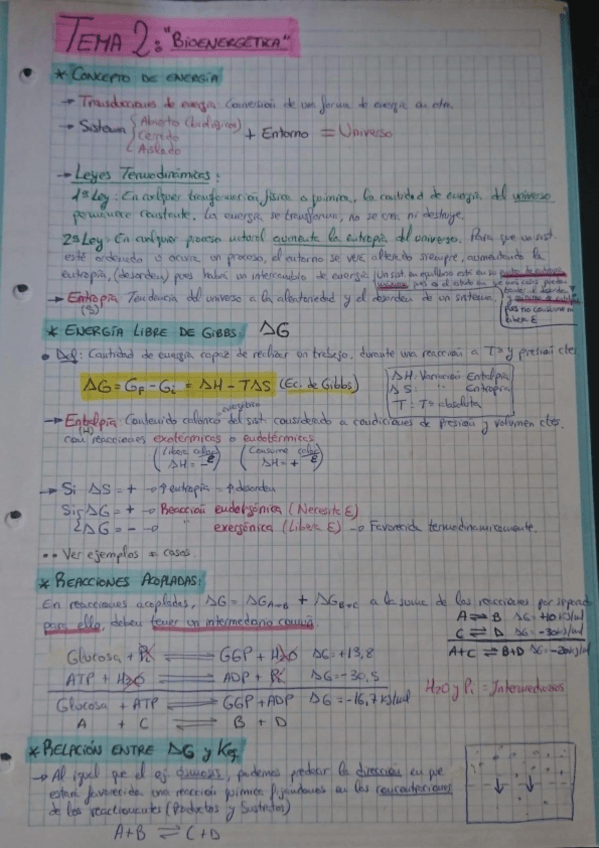 TEMA 2: "BIOENERGETICA"
* CONCEPTO DE ENERGÍA
→ Transducciones de energía Conversión de una forma de energía en otra.
→ Sistema { Abierto (biológicos) Cerrado Aislado + Entorno = Universo
→ Leyes Termodinámicas:
1ª Ley: En cualquier transformación física o química, la cantidad de energía del universo
permanece constante. La energía se transforma, no se crea ni destruye.
2ª Ley: En cualquier proceso natural aumenta la entropía del universo. Para que un sist.
esté ordenado u ocurra un proceso, el entorno se verá alterado siempre, aumentando la
entropía, (desorden) pues habrá un intercambio de energía
→ Entropía Tendencia del universo a la aleatoriedad y el desorden de un sistema.
(S)
pues no consume ni
libera E
* ENERGÍA LIBRE DE GIBBS: ΔG
• Def: Cantidad de energía capaz de realizar un trabajo, durante una reacción a Tª y presión ctes
ΔG = GF - Gi = ΔH - TΔS (Ec. de Gibbs)
ΔH: Variación Entalpía
ΔS: " Entropía
T = Tª absoluta
→ Entalpía: Contenido calórico del sist. considerado a condiciones de presión y volumen ctes.
(H)
con reacciones exotérmicas o endotérmicas
(Libera calor E ΔH = -) (Consume calor E ΔH = +)
→ Si ΔS = + → ↑ entropía = ↑ desorden
Si ΔG = + → Reacción endergónica (Necesita E)
ΔG = - → " exergónica (Libera E) → Favorecida termodinámicamente.
•• Ver ejemplos casos.
* REACCIONES ACOPLADAS:
En reacciones acopladas, ΔG = ΔG A→B + ΔG B→C a la suma de las reacciones por separado
para ello, deben tener un intermediario común.
A ⇌ B ΔG = +10 kJ/mol
C ⇌ D ΔG = -30 kJ/mol
A+C ⇌ B+D ΔG = -20 kJ/mol
Glucosa + Pi ⇌ G6P + H2O ΔG = +13,8
ATP + H2O ⇌ ADP + Pi ΔG = -30,5
Glucosa + ATP ⇌ G6P + ADP ΔG = -16,7 kJ/mol
A + C ⇌ B + D
H2O y Pi = Intermediarios
* RELACIÓN ENTRE ΔG y Keq
→ Al igual que el ej. ósmosis, podemos predecir la dirección en que
estará favorecida una reacción química fijándonos en las concentraciones
de los reaccionantes (Productos y Sustratos)
A+B ⇌ C+D